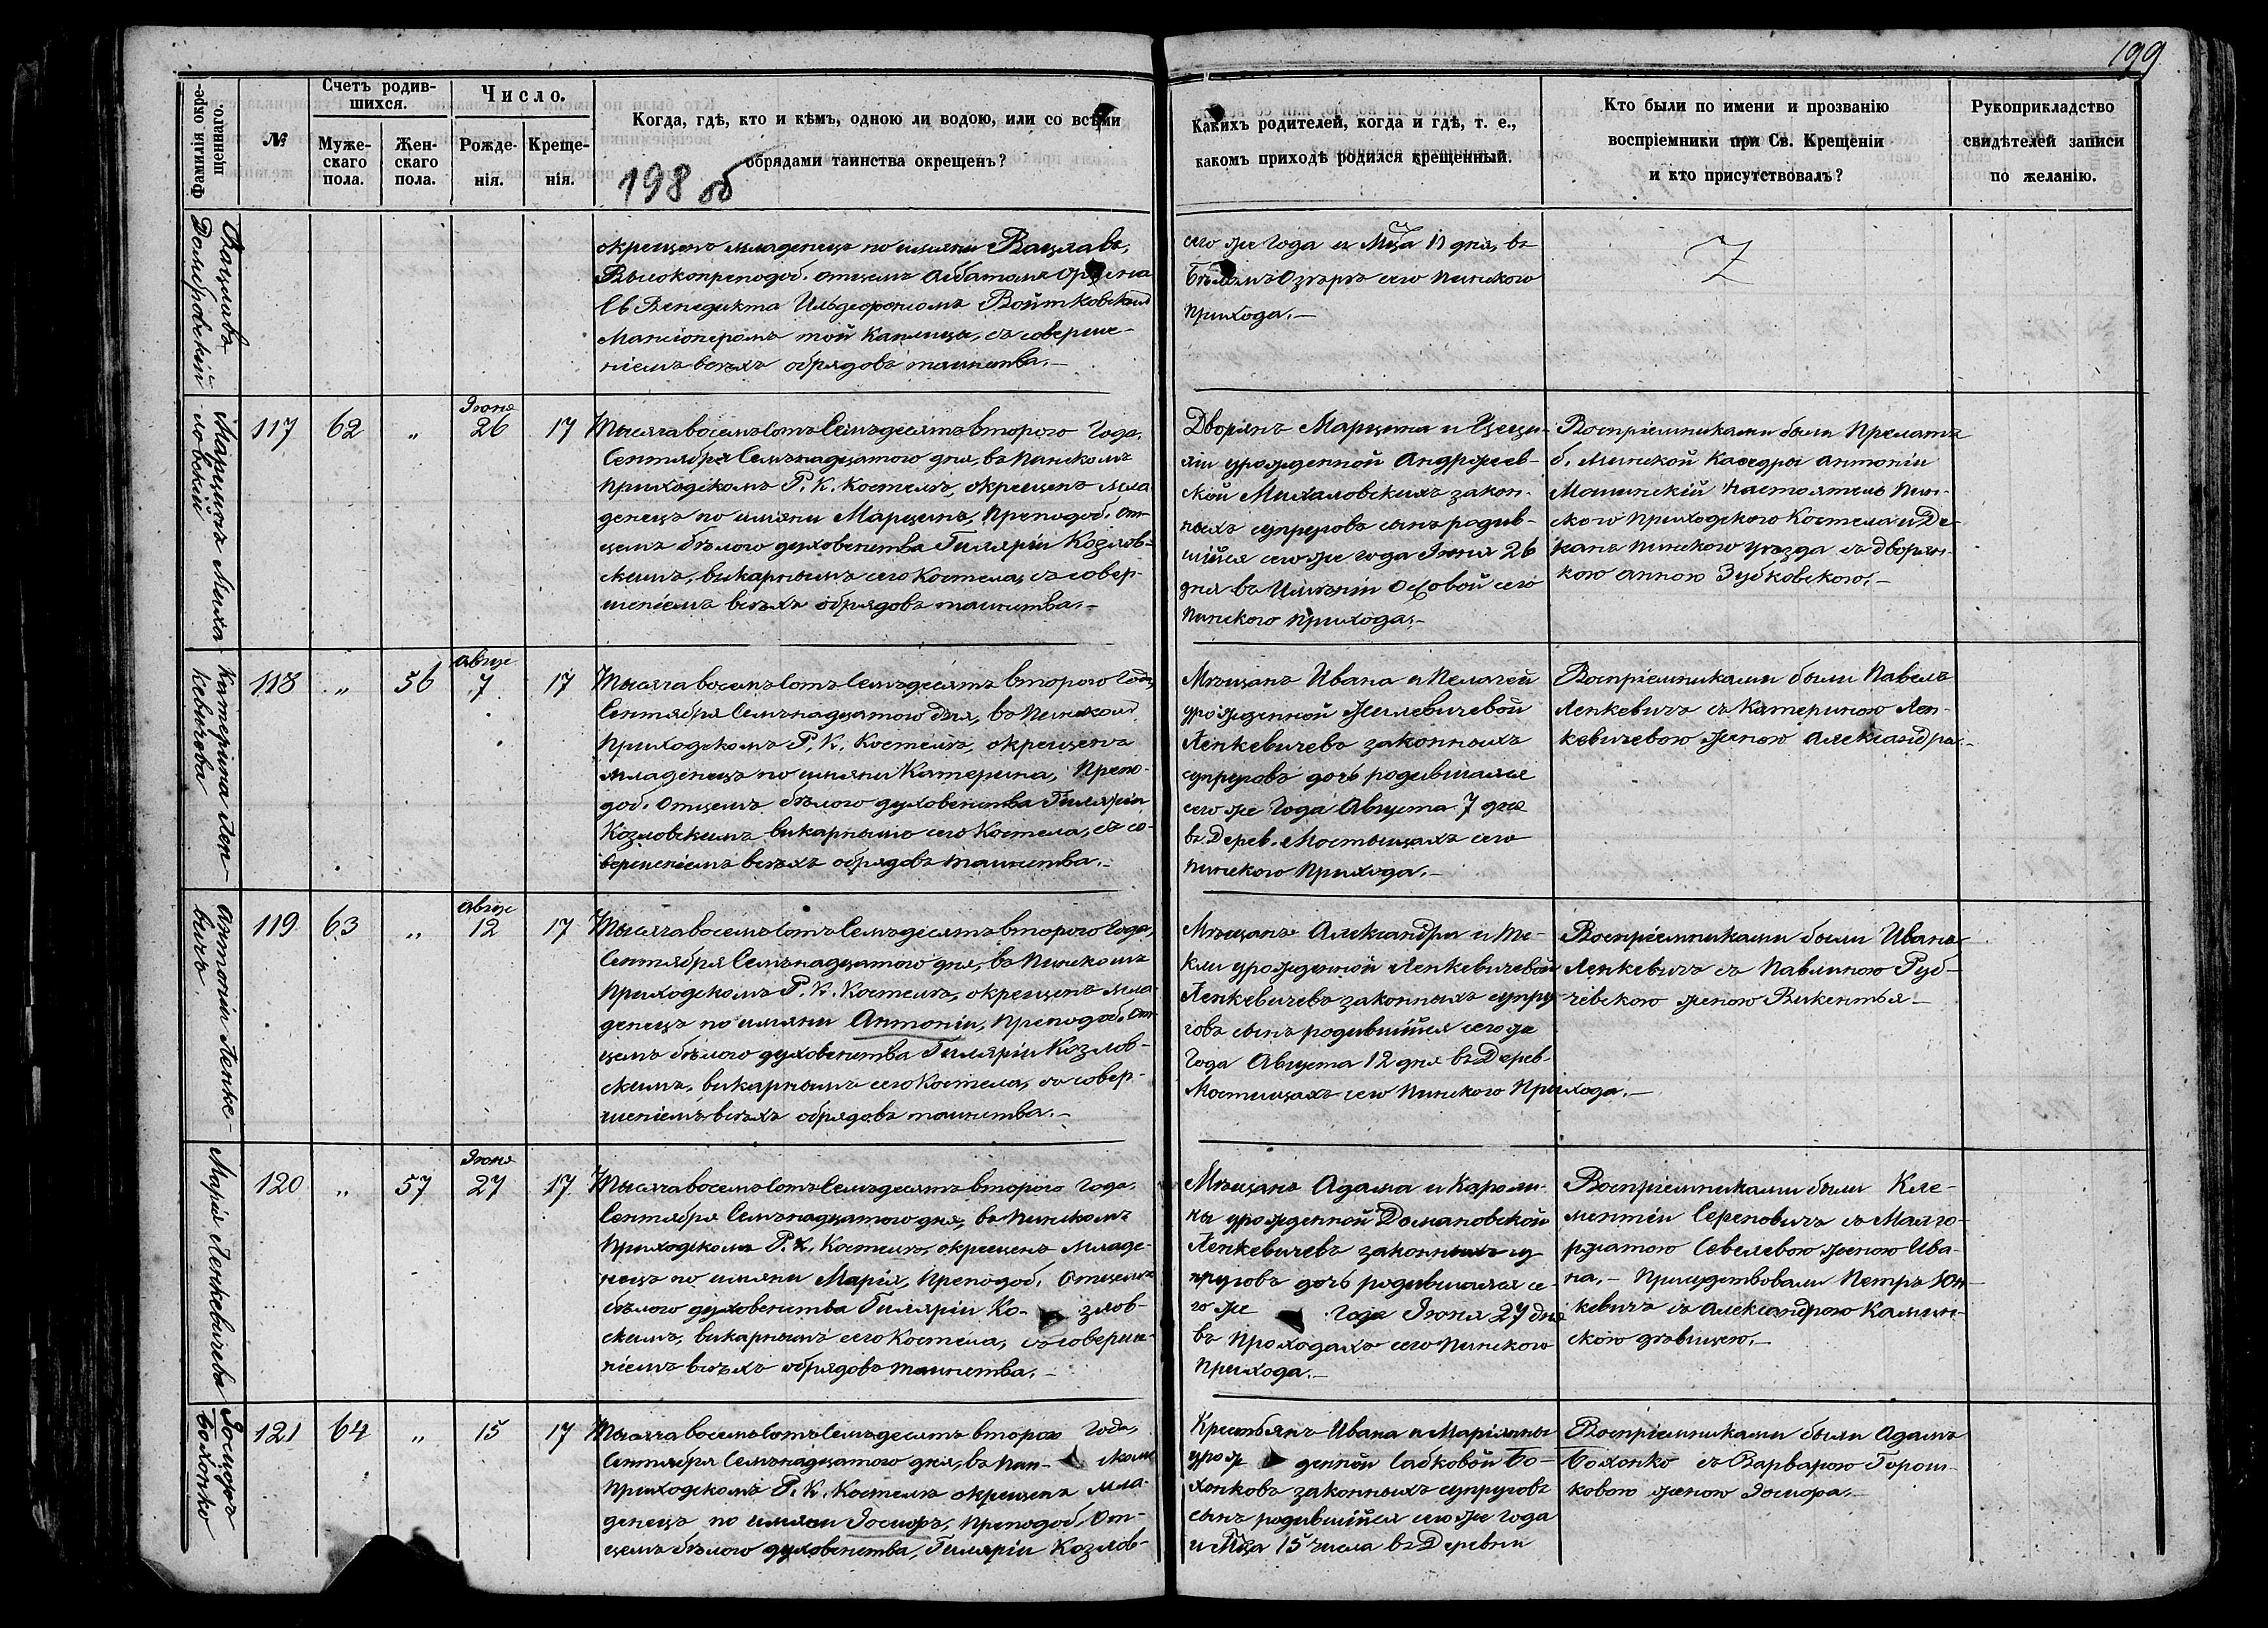 199
Фамилія окре-
щеннаго.
№
Счетъ родив-
шихся.
Муже-
скаго
пола.
Жен-
скаго
пола.
Число.
Рожде-
нія.
Креще-
нія.
Когда, гдѣ, кто и кѣмъ, одною ли водою, или со всѣми
обрядами таинства окрещенъ?
198 об
Какихъ родителей, когда и гдѣ, т. е.,
какомъ приходѣ родился крещенный.
Кто были по имени и прозванію
воспріемники при Св. Крещеніи
и кто присутствовалъ?
Рукоприкладство
свидѣтелей записи
по желанію.
Вацлавъ
Домбровскій
окрещенъ младенецъ по имяни Вацлавъ,
Высокопреподоб. отцемъ Аббатомъ Ордена
Св Венедикта Ильдефонсомъ Войтковскимъ
Мансіонеромъ той Каплицы, съ соверше-
ніемъ всѣхъ обрядовъ таинства.—
сего же Года и Мца 11 дня, въ
Бѣломъ Озѣрѣ сего Пинского
Прихода.—
Марцинъ Миха-
ловскій
117
62
„
Іюня
26
17
Тысяча восемъ сотъ Семъдесятъ второго Года,
Сентября Семънадцатого дня, въ Пинскомъ
Приходскомъ Р. К. Костелѣ, окрещенъ мла-
денецъ по имяни Марцинъ, Преподоб. От-
цемъ бѣлого духовенства Гиляріи Козлов-
скимъ, викарнымъ сего Костела, съ совер-
шеніемъ всѣхъ обрядовъ таинства.—
Дворянъ Марцина и Цеци-
ліи урожденной Андржеев-
ской Михаловскихъ закон-
ныхъ супруговъ сынъ родив-
шійся сего же года Іюня 26
дня въ Имѣніи Оховой сего
Пинского Прихода.—
Воспріемниками были Прелатъ
б. Минской Каѳедры Антоніи
Мошинскій Настоятель Пин-
ского Приходского Костела и Де-
канъ Пинского уѣзда съ дворян-
кою Анною Зубковскою.—
Катерина Лен-
кевичова
118
„
56
Авгус
7
17
Тысяча восемъ сотъ Семъдесятъ второго Года,
Сентября Семънадцатого дня, въ Пинском
Приходскомъ Р. К. Костелѣ, окрещенъ
младенецъ по имяни Катерина, Препо-
доб. Отцемъ бѣлого духовенства Гиляріи
Козловскимъ викарнымъ сего Костела, съ со-
вершеніемъ всѣхъ обрядовъ таинства.—
Мѣщанъ Ивана и Пелагей
урожденной Жилевичевой
Ленкевичевъ законныхъ
супруговъ дочь родившаяся
сего же Года Августа 7 дня
въ Дерев. Мостыщахъ сего
Пинского Прихода.—
Воспріемниками были Павелъ
Ленкевичъ съ Катериною Лен-
кевичевою женою Александра.—
Антоніи Ленке-
вичъ
119
63
„
Авгус
12
17
Тысяча восемъ сотъ Семъдесятъ второго Года,
Сентября Семънадцатого дня, въ Пинскомъ
Приходскомъ Р. К. Костелѣ, окрещенъ мла-
денецъ по имяни Антоніи, Преподоб. От-
цемъ бѣлого духовенства Гиляріи Козлов-
скимъ, викарнымъ сего Костела, съ совер-
шеніемъ всѣхъ обрядовъ таинства.—
Мѣщанъ Александра и Те-
кли урожденной Ленкевичевой
Ленкевичевъ законныхъ супру-
говъ сынъ родившійся сего же
Года Августа 12 дня въ Дерев-
Мостищахъ сего Пинского Прихода.—
Воспріемниками были Иванъ
Ленкевичъ съ Павлиною Руб-
чевскою женою Викентья—
Марія Ленкевичева
120
„
57
Іюня
27
17
Тысяча восемъ сотъ Семъдесятъ второго Года,
Сентября Семънадцатого дня, въ Пинскомъ
Приходскомъ Р. К. Костелѣ, окрещенъ младе-
нецъ по имяни Марія, Преподоб. Отцемъ
бѣлого духовенства Гиляріи Ко- злов-
скимъ, викарнымъ сего Костела, съ соверше-
ніемъ всѣхъ обрядовъ таинства.—
Мѣщанъ Адама и Кароли-
ны урожденной Домановской
Ленкевичевъ законныхъ су-
пруговъ дочь родившаяся се-
го же года Іюня 27 дня
въ Проходахъ сего Пинского
Прихода.—
Воспріемниками были Кле-
ментіи Сереповичъ съ Малго-
ржатою Севелевою женою Ива-
на.— Присудствовали Петръ Юн-
кевичъ съ Александрою Камин-
скою дѣвицею.—
Іосифъ
Бохонко
121
64
„
15
17
Тысяча восемъ сотъ Семъдесятъ второго Года,
Сентября Семънадцатого дня, въ Пин- скомъ
Приходскомъ Р. К. Костелѣ окрещенъ мла-
денецъ по имяни Іосифъ, Преподоб. От-
цемъ бѣлого духовенства, Гиляріи Козлов-
Крестьянъ Ивана и Маріянны
урож денной Сабковой Бо-
хонковъ законныхъ супруговъ
сынъ родившійся сего же года
и Мца 15 числа въ Деревни
Воспріемниками были Адамъ
Бохонко съ Варварою Горош-
ковою женою Іосифа.—